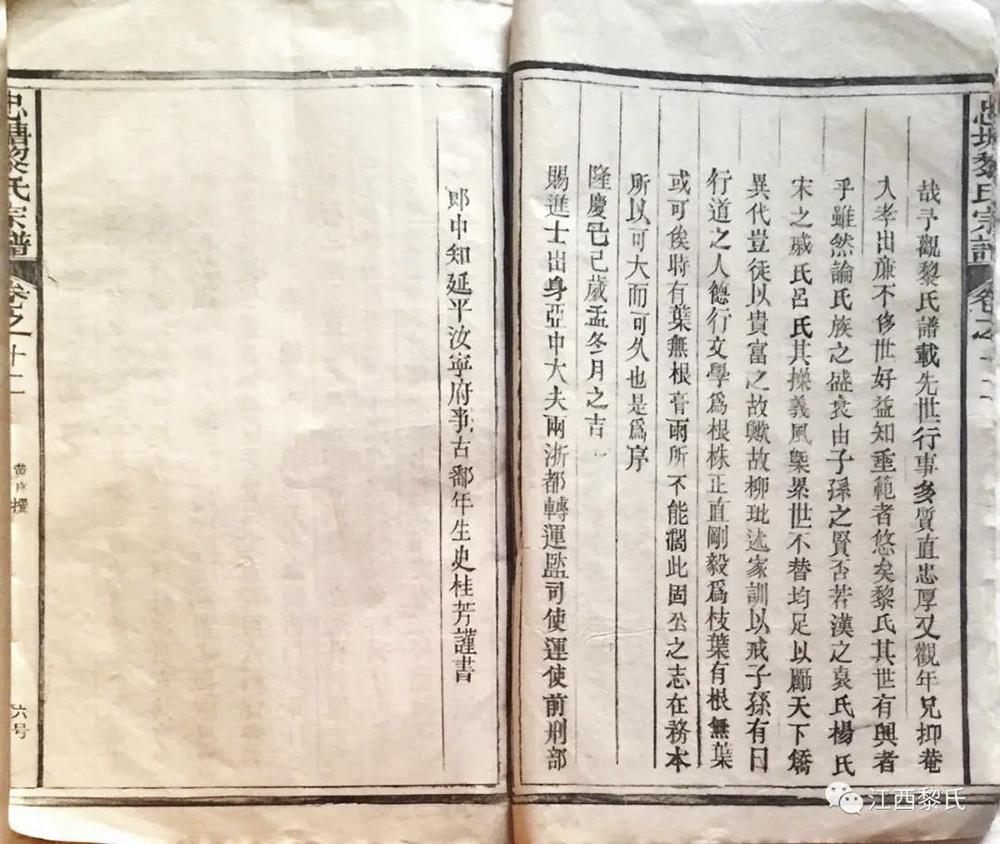 忠塘黎氏宗譜
卷之
哉予觀黎氏譜載先世行事多質直忠厚又觀年兄抑菴
入孝出廉不侈世好益知垂範者悠矣黎氏其世有興者
乎雖然論氏族之盛衰由子孫之賢否若漢之袁氏楊氏
宋之戚氏呂氏其操義風槩累世不替均足以勵天下矯
異代豈徒以貴富之故歟故柳玭述家訓以戒子孫有曰
行道之人德行文學爲根株正直剛毅爲枝葉有根無葉
或可俟時有葉無根膏雨所不能澗此固公之志在務本
所以可大而可久也是爲序
隆慶己巳歲孟冬月之吉
賜進士出身亞中大夫兩浙都轉運監司使運使前刑部
郎中知延平汝寧府事古鄱年生史桂芳謹書
忠塘黎氏宗譜
卷之十二
撰
六号
江西黎氏